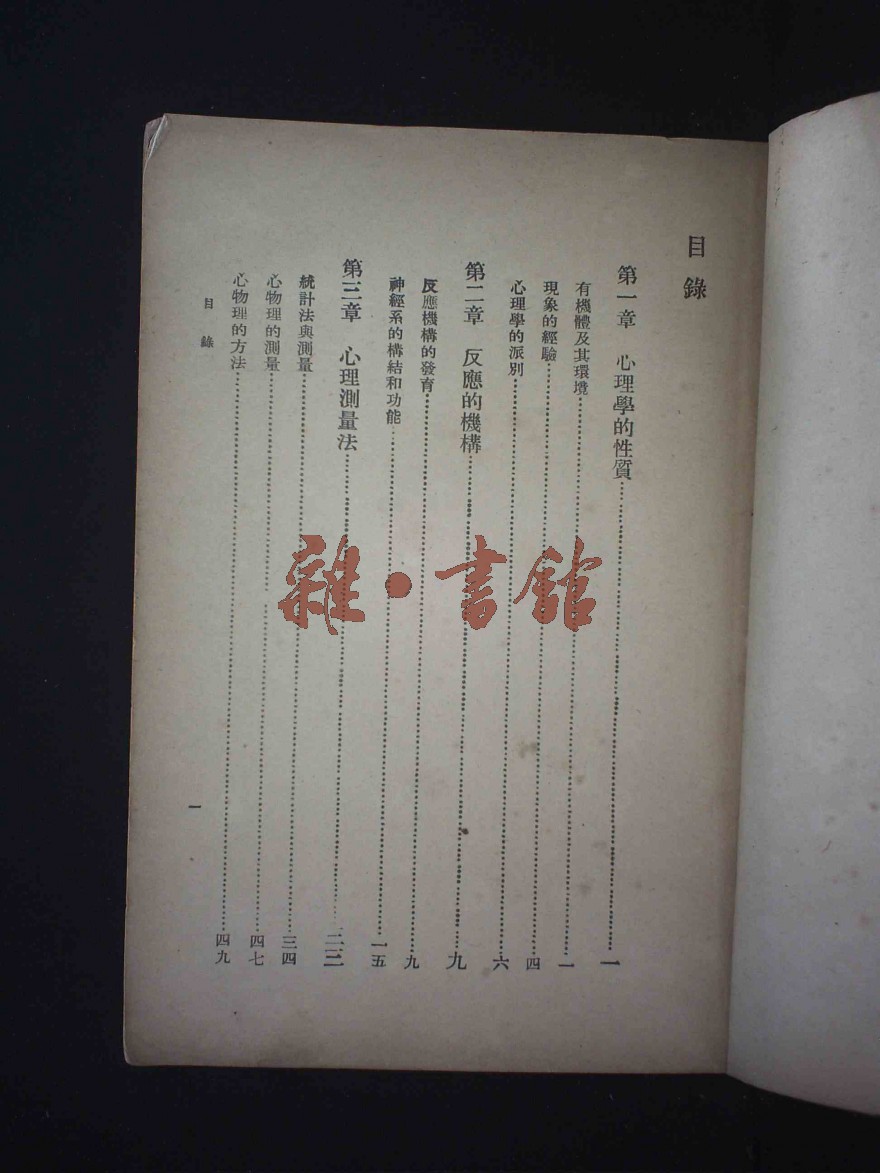 目錄
第一章 心理學的性質…………一
有機體及其環境…………一
現象的經驗…………四
心理學的派別…………六
第二章 反應的機構…………九
反應機構的發育…………九
神經系的構結和功能…………一五
第三章 心理測量法…………三三
統計法與測量…………三四
心物理的測量…………四七
心物理的方法…………四九
目錄
一
雜·書館